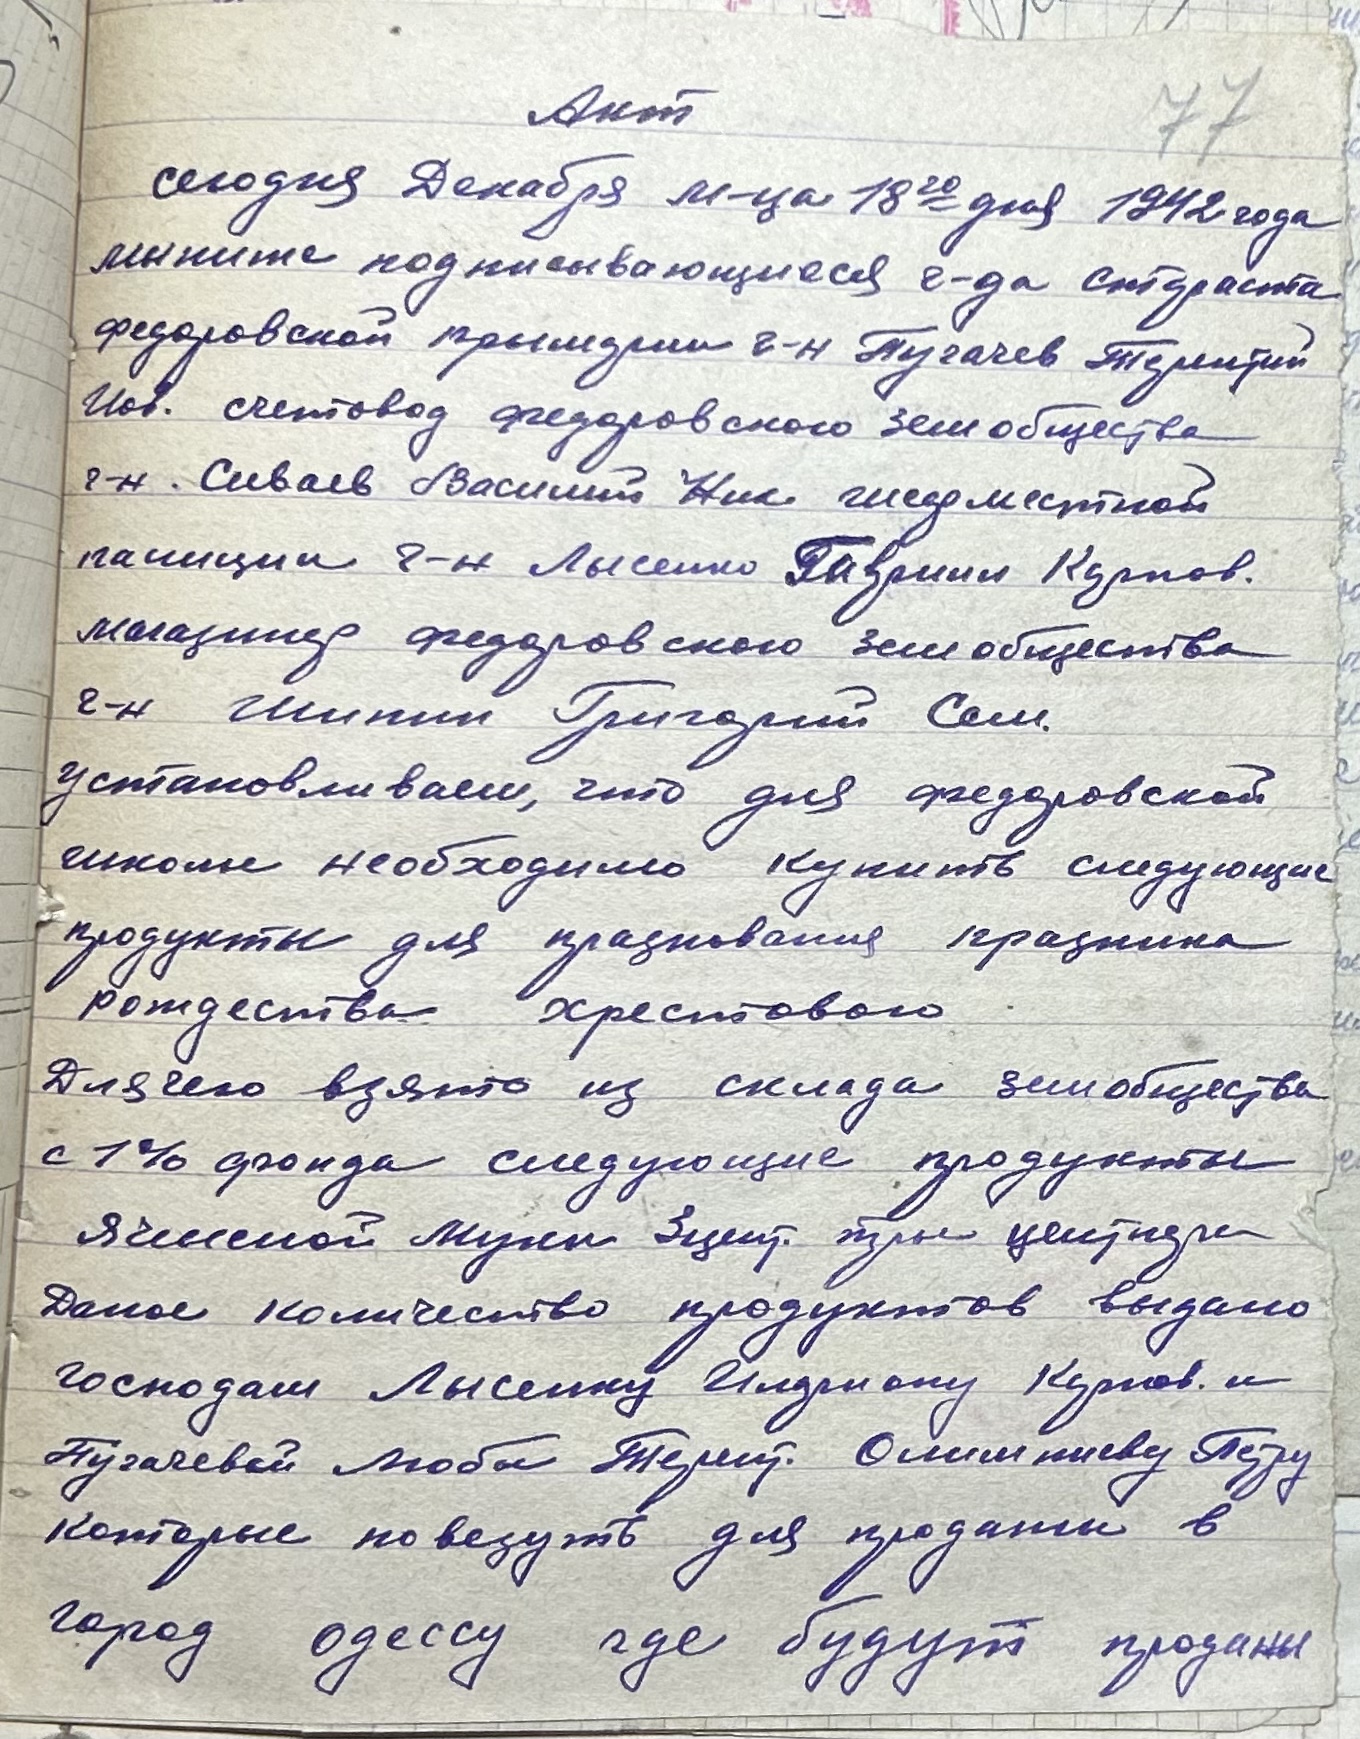 77
Акт
сегодня Декабря м-ца 18го дня 1942 года
мы ниже подписывающиеся г-да староста
федоровской прымарии г-н Пугачев Терентий
Иов. счетовод федоровского земобщества
г-н. Сиваев Василий Ник. шеф местной
палиции г-н Лысенко Гавриил Карпов.
магазинер федоровского земобщества
г-н Шипин Григорий Сем.
установливаем, что для федоровской
школы необходимо купить следующие
продукты для празнования празника
рождества хрестового
Для чего взято из склада земобщества
с 1% фонда следующие продукты
Ячменой муки 3 цент. тры центнера
Даное количество продуктов выдано
господам Лысенку Илариону Карпов. и
Пугачевой Любе Терент. Олимпиеву Петру
которые повезуть для продажи в
город одессу где будут проданы